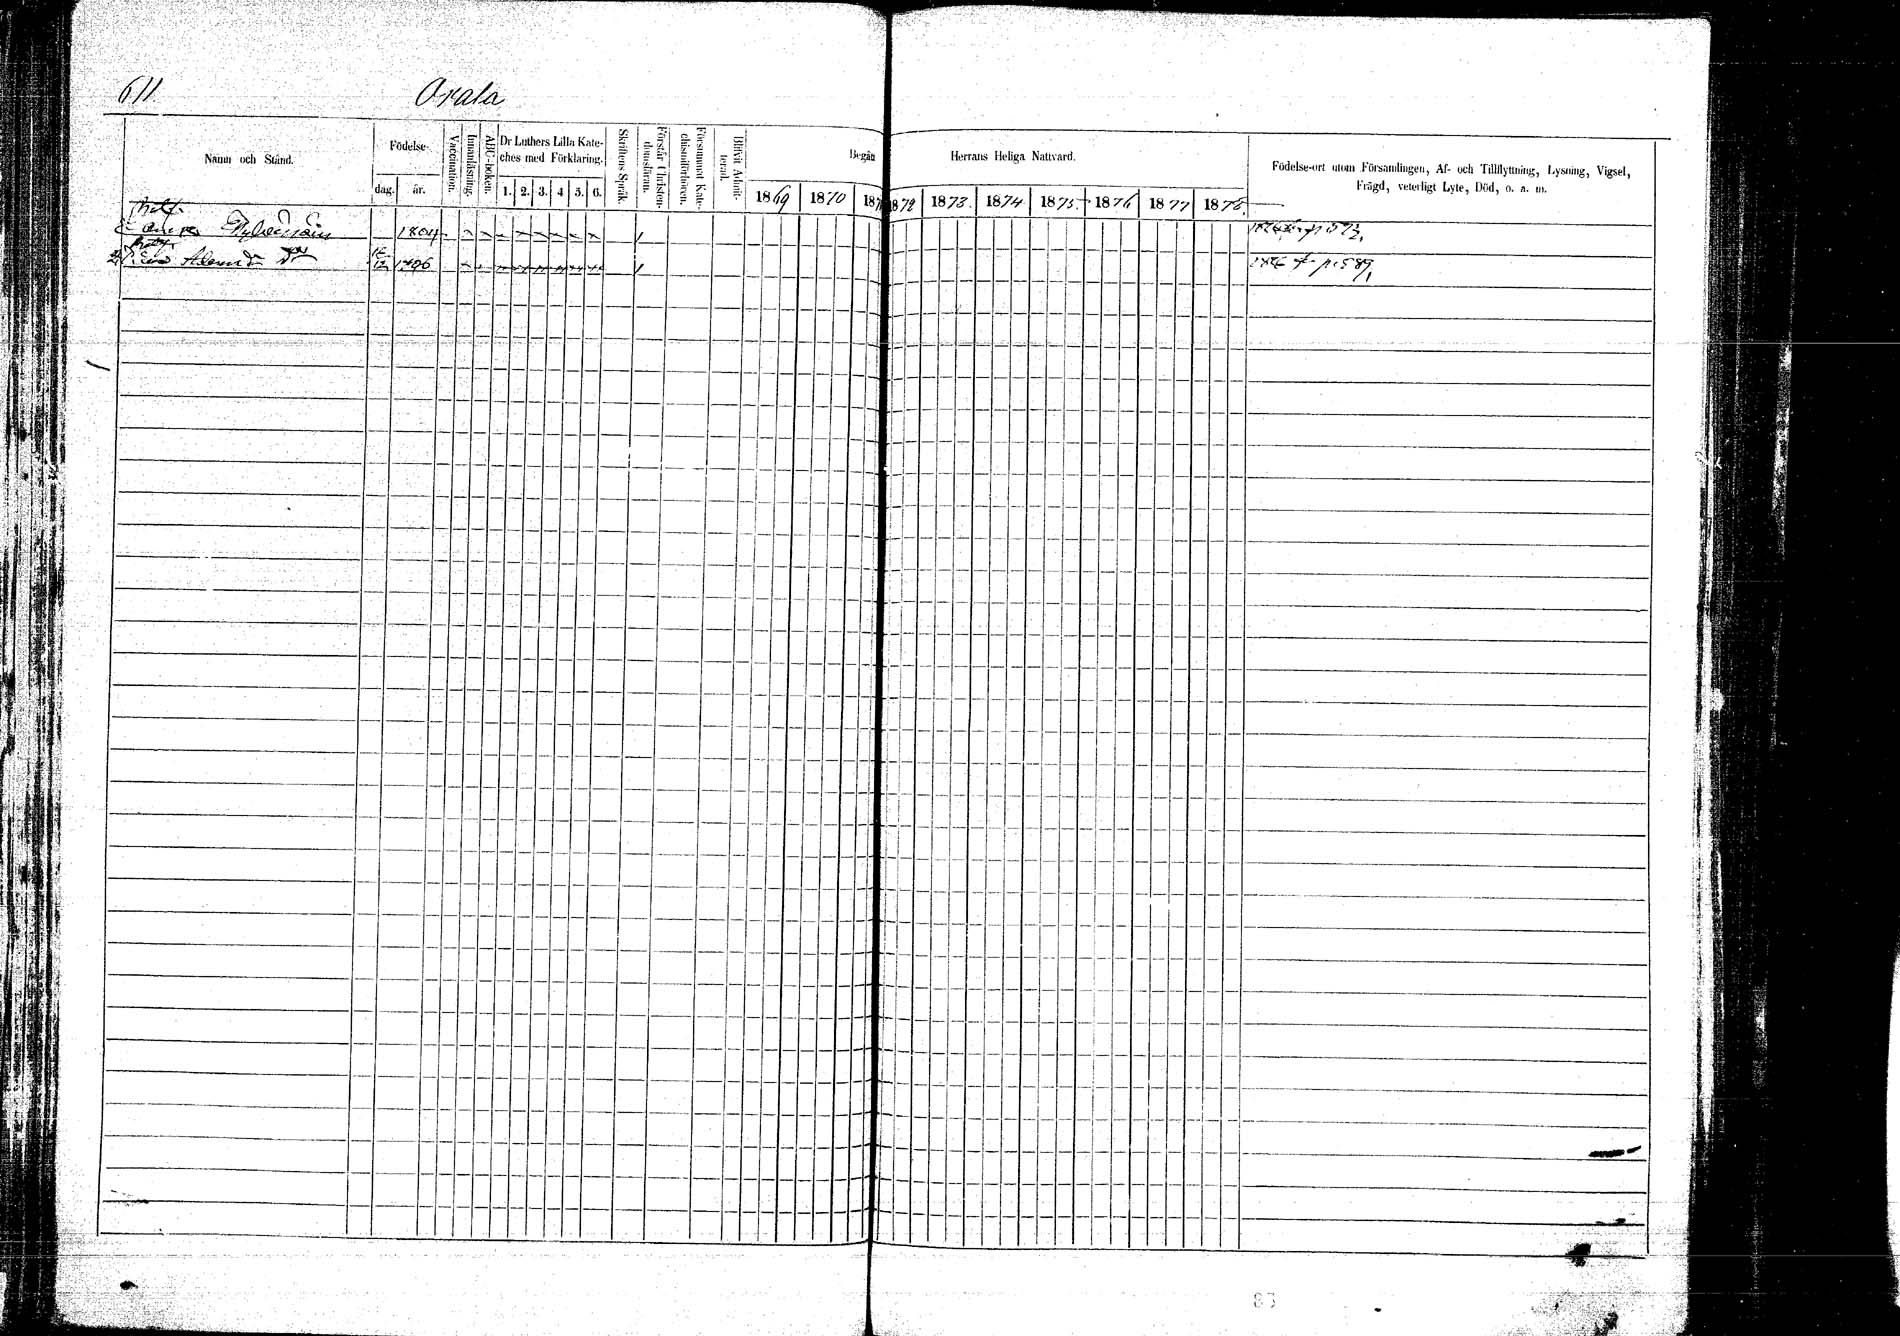 611
Orala
Namn och Stånd.
Födelse-
dag.
år.
Vaccination.
Innanläsning.
ABC-boken.
Dr Luthers Lilla Kate-
ches med Förklaring.
1. 2. 3. 4 5. 6.
Skriftens Språk.
Förstår Christen-
domsläran.
Försummat Kate-
chismiförhören.
Blifvit Admit-
terad.
Begån
Herrans Heliga Nattvard.
1869 1870 187 1872 1873. 1874 1875. 1876 1877 1878.
Födelse-ort utom Församlingen, Af- och Tillflyttning, Lysning, Vigsel,
Frägd, veterligt Lyte, Död, o. a. m.
1804
1806
p. 589
83